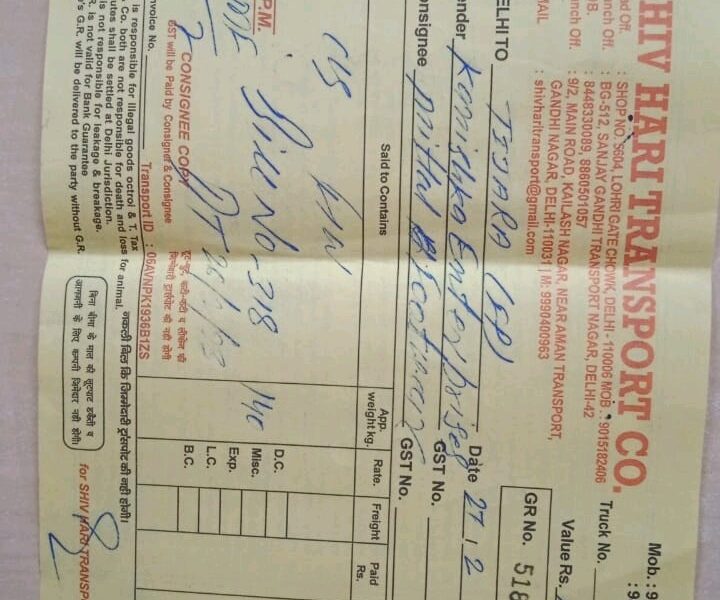 Mob.: 9
: 9
SHIV HARI TRANSPORT CO.
ead Off. : SHOP NO. 5604, LOHRI GATE CHOWK, DELHI - 110006 MOB.: 9015182406
nch Off. : BG-512, SANJAY GANDHI TRANSPORT NAGAR, DELHI-42
OB. : 8448330089, 8860501057
nch Off. : 9/2, MAIN ROAD, KAILASH NAGAR, NEAR AMAN TRANSPORT,
GANDHI NAGAR, DELHI-110031 | M: 9990400963
MAIL : shivharitransport@gmail.com
Truck No.
Value Rs.
GR No. 518
ELHI TO TIJARA
Date 27.2
nder Kanishka Enterprises GST No.
Consignee Mittal Footwear GST No.
Said to Contains
App. weight kg.
Rate.
Freight
Paid Rs.
D.C.
Misc.
Exp.
L.C.
B.C.
140
Bill No - 318
DT
P.M.
CONSIGNEE COPY
GST will be Paid by Consigner & Consignee
टूट-फूट, कटी-फटी व लीकेज की
जिम्मेदारी ट्रांसपोर्ट की नहीं होगी
Invoice No.
Transport ID : 06AVNPK1936B1ZS
is responsible for Illegal goods octroi & T. Tax
Co. both are not responsible for death and loss for animal.
utes shall be settled at Delhi Jurisdiction.
is not responsible for leakage & breakage.
R. is not valid for Bank Guarantee
's G.R. will be delivered to the party without G.R.
नकली बिल कि जिम्मेदारी ट्रांसपोर्ट की नहीं होगी।
बिना बीमा के माल की लूटपाट डकैती व
आगजनी के लिए कम्पनी जिम्मेदार नहीं होगी।
for SHIV HARI TRANSP